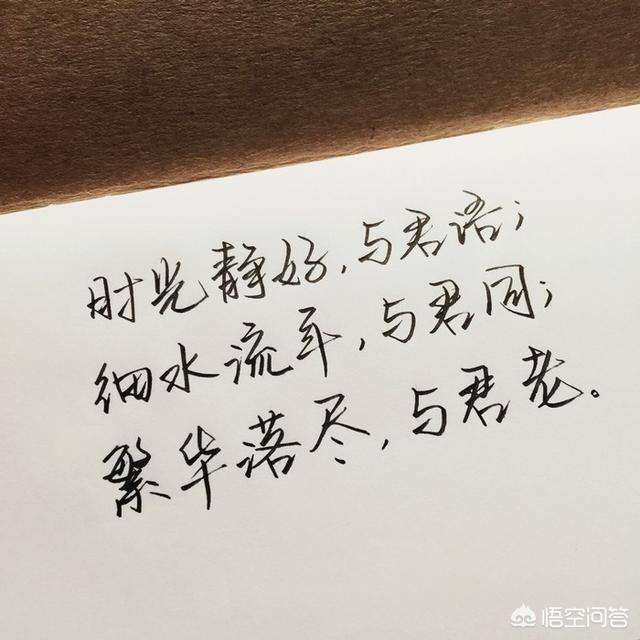 时光静好，与君语；
细水流年，与君同；
繁华落尽，与君老。
悟空问答